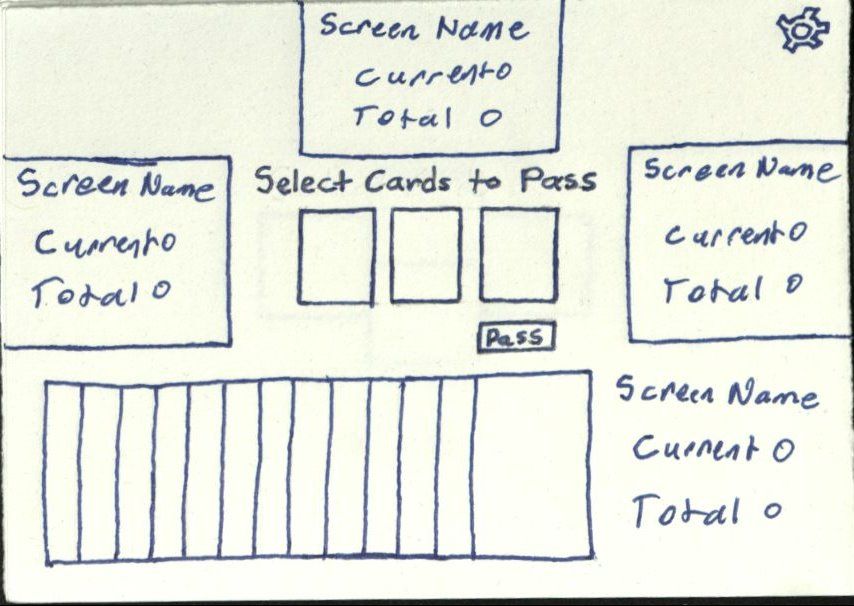 Screen Name
Current 0
Total 0
Screen Name
Current 0
Total 0
Select Cards to Pass
Pass
Screen Name
Current 0
Total 0
Screen Name
Current 0
Total 0